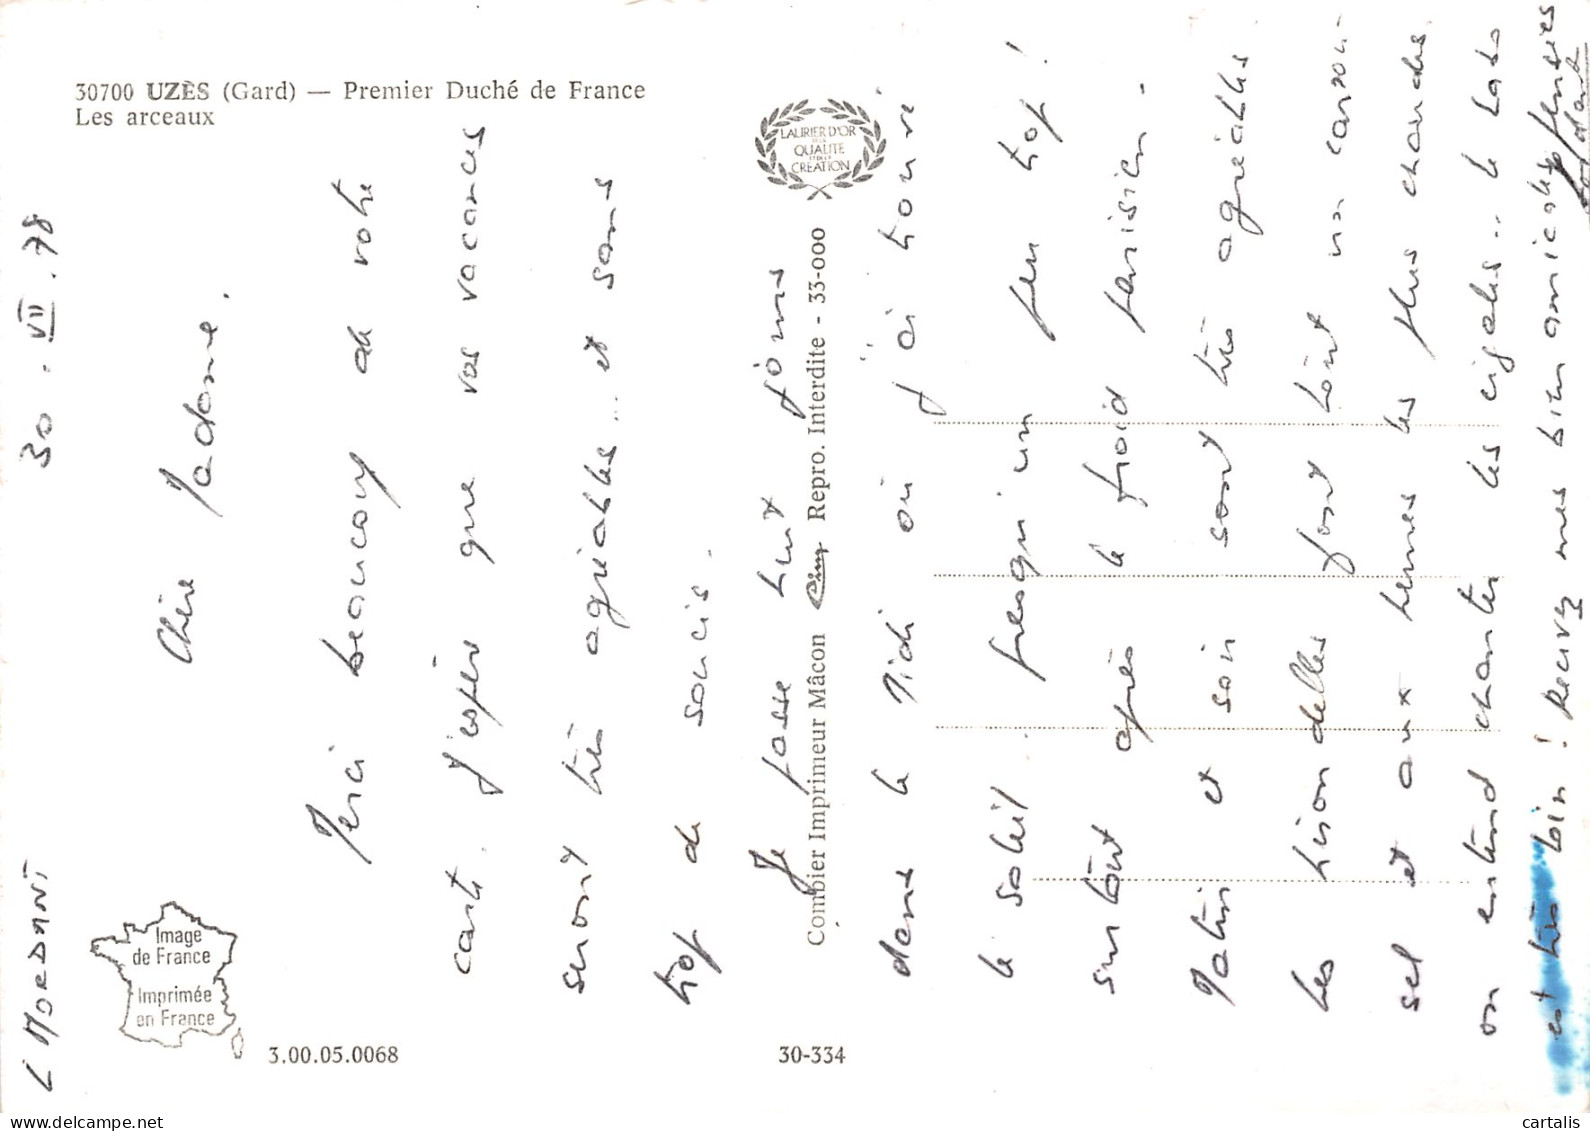 30700 UZÈS (Gard) — Premier Duché de France
Les arceaux
LAURIER D'OR
DE LA
QUALITE
ET DE LA
CREATION
Combier Imprimeur Mâcon Cim Repro. Interdite - 33-000
Image
de France
Imprimée
en France
3.00.05.0068
30-334
L MORDANT
30. VII. 78
Chère Madame.
Merci beaucoup de votre
carte. J'espère que vos vacances
seront très agréables... et sans
trop de soucis.
Je passe huit jours
dans le Midi où j'ai trouvé
le soleil. presqu'un peu trop!
surtout après le froid parisien.
Matin et soir sont très agréables
Les hirondelles font tout un carrou-
sel et aux heures les plus chaudes
on entend chanter les cigales.. le labo
est très loin! Recevez mes bien amicales pensées
cartalis